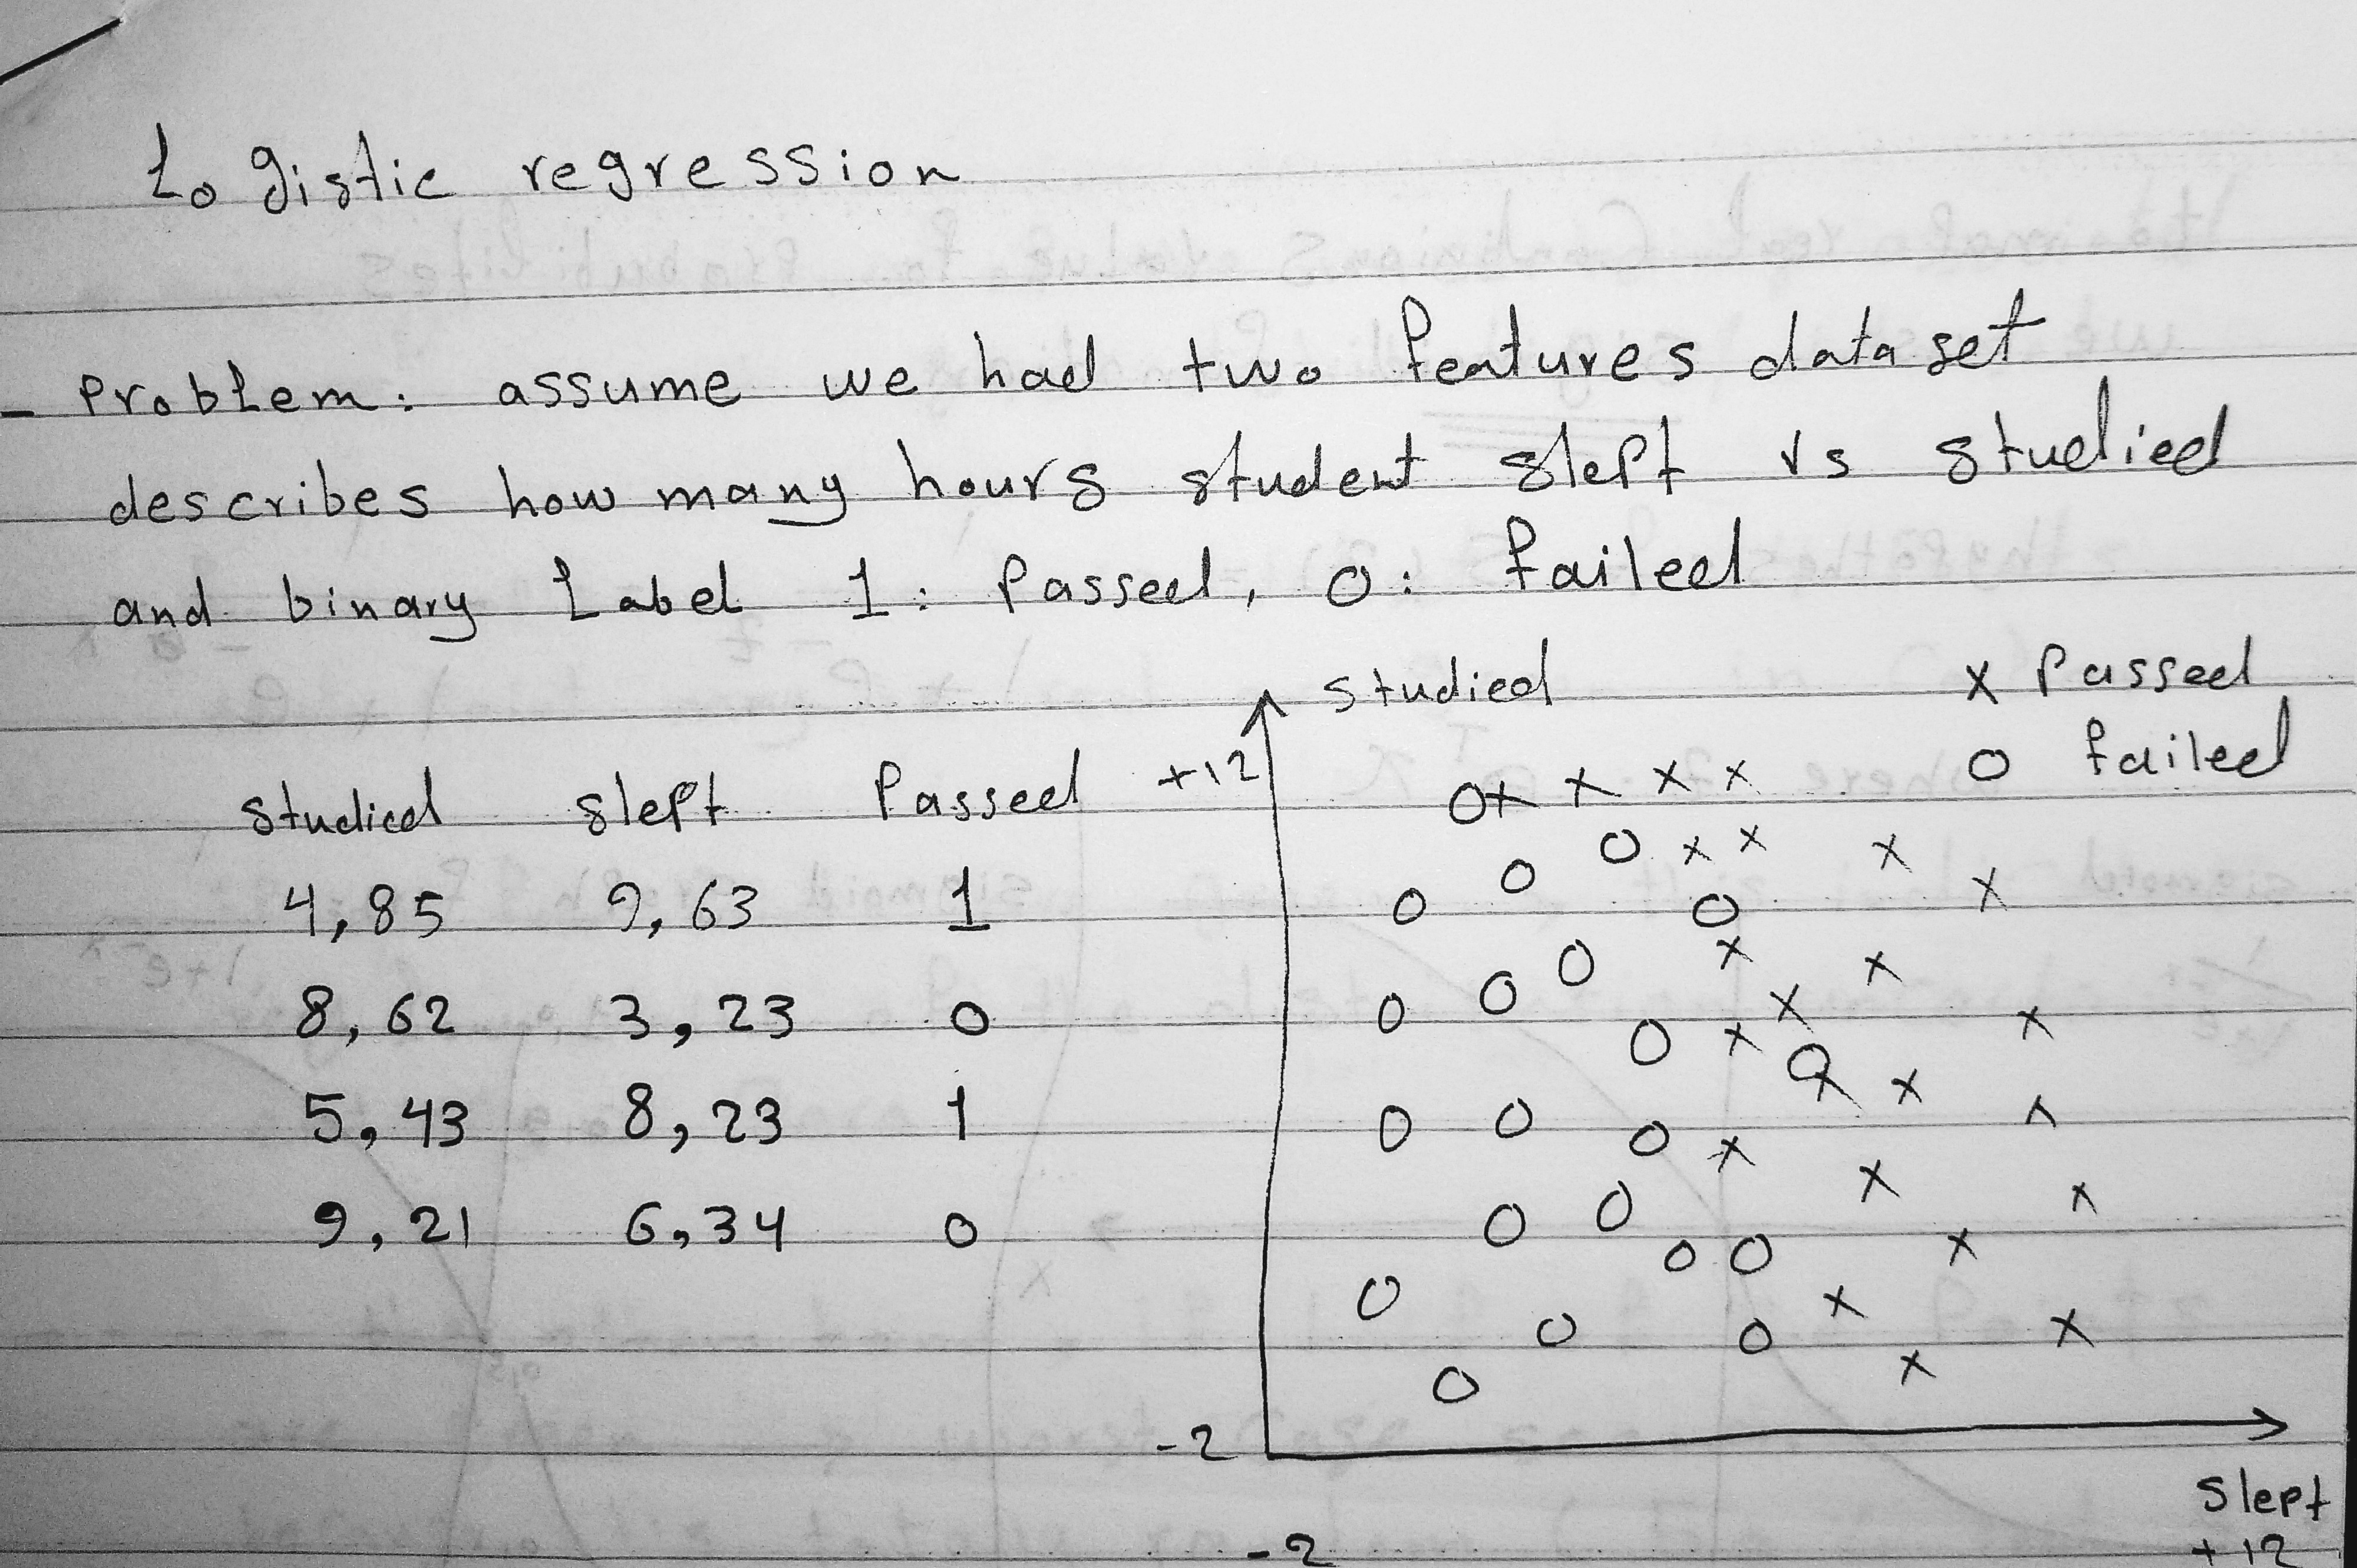 Logistic regression
- Problem: assume we had two features dataset
describes how many hours student slept vs studied
and binary Label 1: Passed, 0: failed
studied slept Passed
4,85 9,63 1
8,62 3,23 0
5,43 8,23 1
9,21 6,34 0
studied
x Passed
o failed
+12
-2
-2
slept
+12